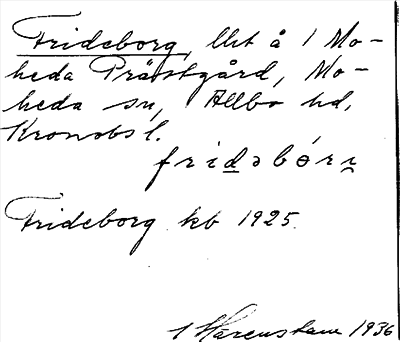 Frideborg, lht å 1 Mo-
heda Prästgård, Mo-
heda sn, Allbo hd,
Kronobs l.
fridəbórı
Frideborg kb 1925.
1936